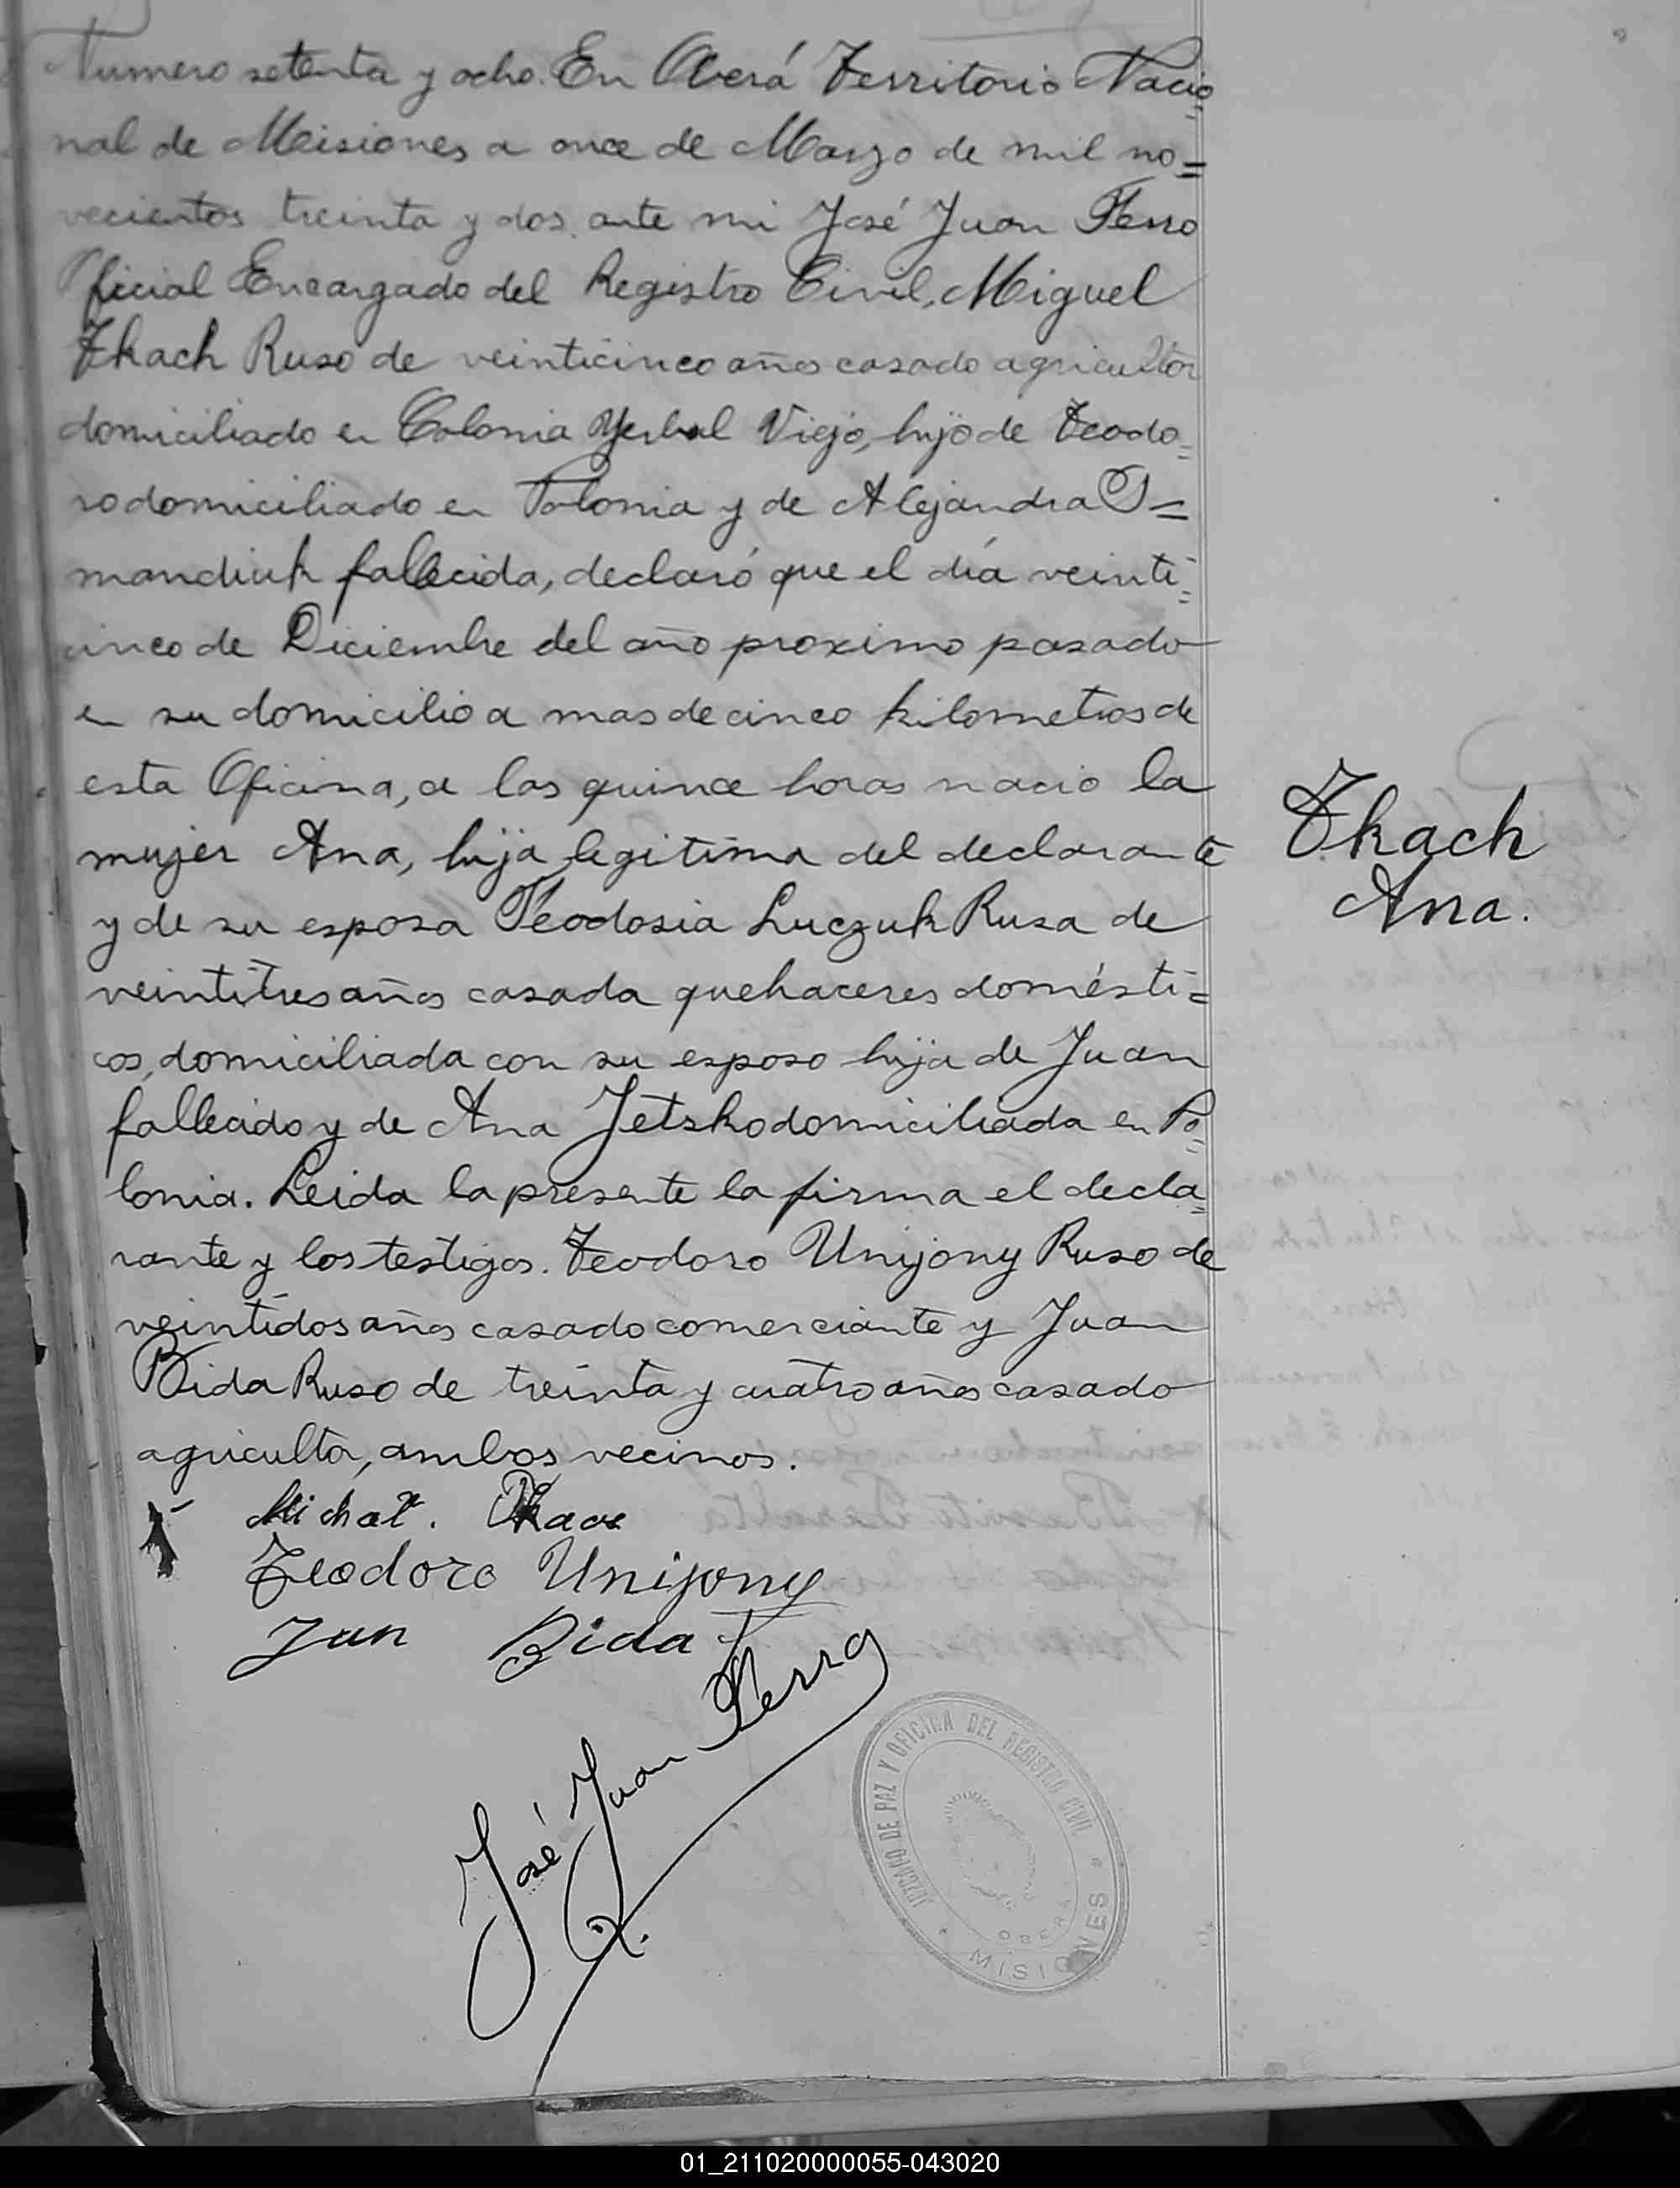 Numero setenta y ocho. En Oberá Territorio Nacio=
nal de Misiones a once de Marzo de mil no=
vecientos treinta y dos, ante mi José Juan Ferro
Oficial Encargado del Registro Civil, Miguel
Tkach Ruso de veinticinco años casado agricultor
domiciliado en Colonia Yerbal Viejo, hijo de Teodo=
ro domiciliado en Polonia y de Alejandra O=
mandiuk fallecida, declaró que el día veinti=
cinco de Diciembre del año proximo pasado
en su domicilio a mas de cinco kilometros de
esta Oficina, a las quince horas nacio la
mujer Ana, hija legitima del declarante
y de su esposa Teodosia Luczuk Rusa de
veintitres años casada quehaceres domésti=
cos, domiciliada con su esposo hija de Juan
fallecido y de Ana Jetsko domiciliada en Po=
lonia. Leida la presente la firma el decla=
rante y los testigos. Teodoro Unijony Ruso de
veintidos años casado comerciante y Juan
Bida Ruso de treinta y cuatro años casado
agriculto, ambos vecinos.
Tkach
Ana.
Michał.
Teodoro Unijony
Jan Bida
José Juan Ferro
JUZGADO DE PAZ Y OFICINA DEL REGISTRO CIVIL
OBERÁ
* MISIONES *
01_211020000055-043020